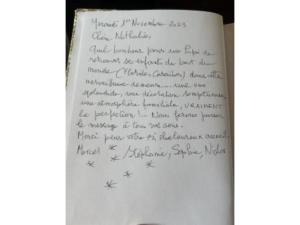 Mercredi 1er Novembre 2023
Chère Nathalie,
Quel bonheur pour un Papi de
retrouver ses enfants du bout du
monde (Floride, Caraïbes) dans cette
merveilleuse demeure... vue
splendide, une décoration somptueuse,
une atmosphère familiale, VRAIMENT
la perfection... Nous ferons passer
le message à tous nos amis.
Merci pour votre si chaleureux accueil.
Marcel Stéphanie, Sophie,